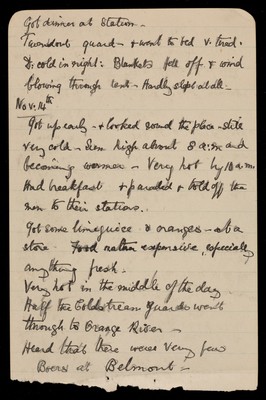 Got dinner at Station -
guard - & went to bed v. tired.
D: cold in night: Blankets fell off & wind
blowing through tent - Hardly slept at all -
Nov. 14th
Got up early - & looked round the place - still
very cold - Sun high about 8 a.m. and
becoming warmer - Very hot by 10 a.m.
Had breakfast & paraded & told off the
men to their stations.
Got some limejuice & oranges - at a
store - Food rather expensive, especially
anything fresh.
Very hot in the middle of the day
Half the Coldstream Guards went
through to Orange River -
Heard that there were very few
Boers at Belmont -